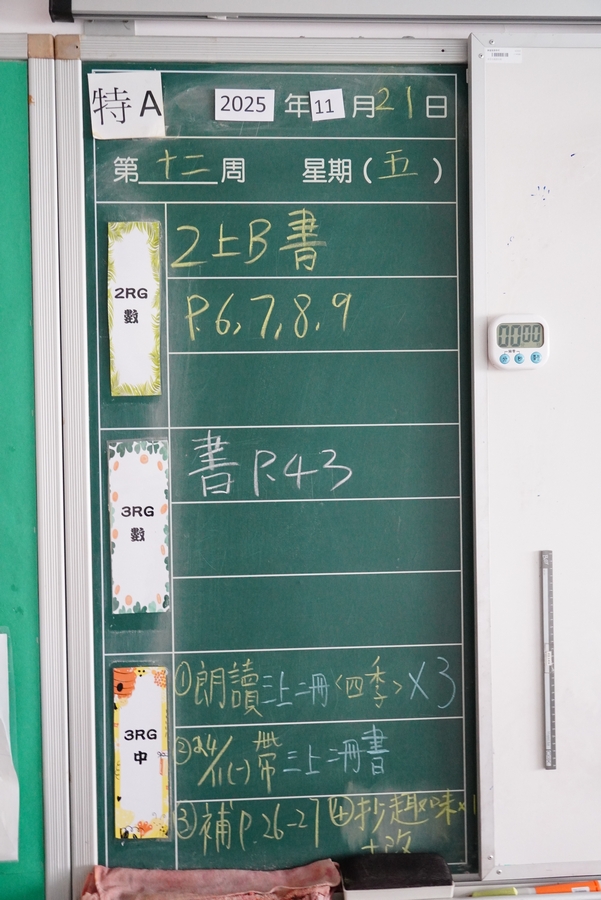 特A 2025 年 11 月 21 日
第 十二 周 星期 ( 五 )
2RG 數
2上B 書
P.6,7,8,9
3RG 數
書 P.43
3RG 中
①朗讀三上二冊<四季>×3
②24/11(一)帶三上二冊書
③補P.26-27 ④抄趣味×1
+改
00 00